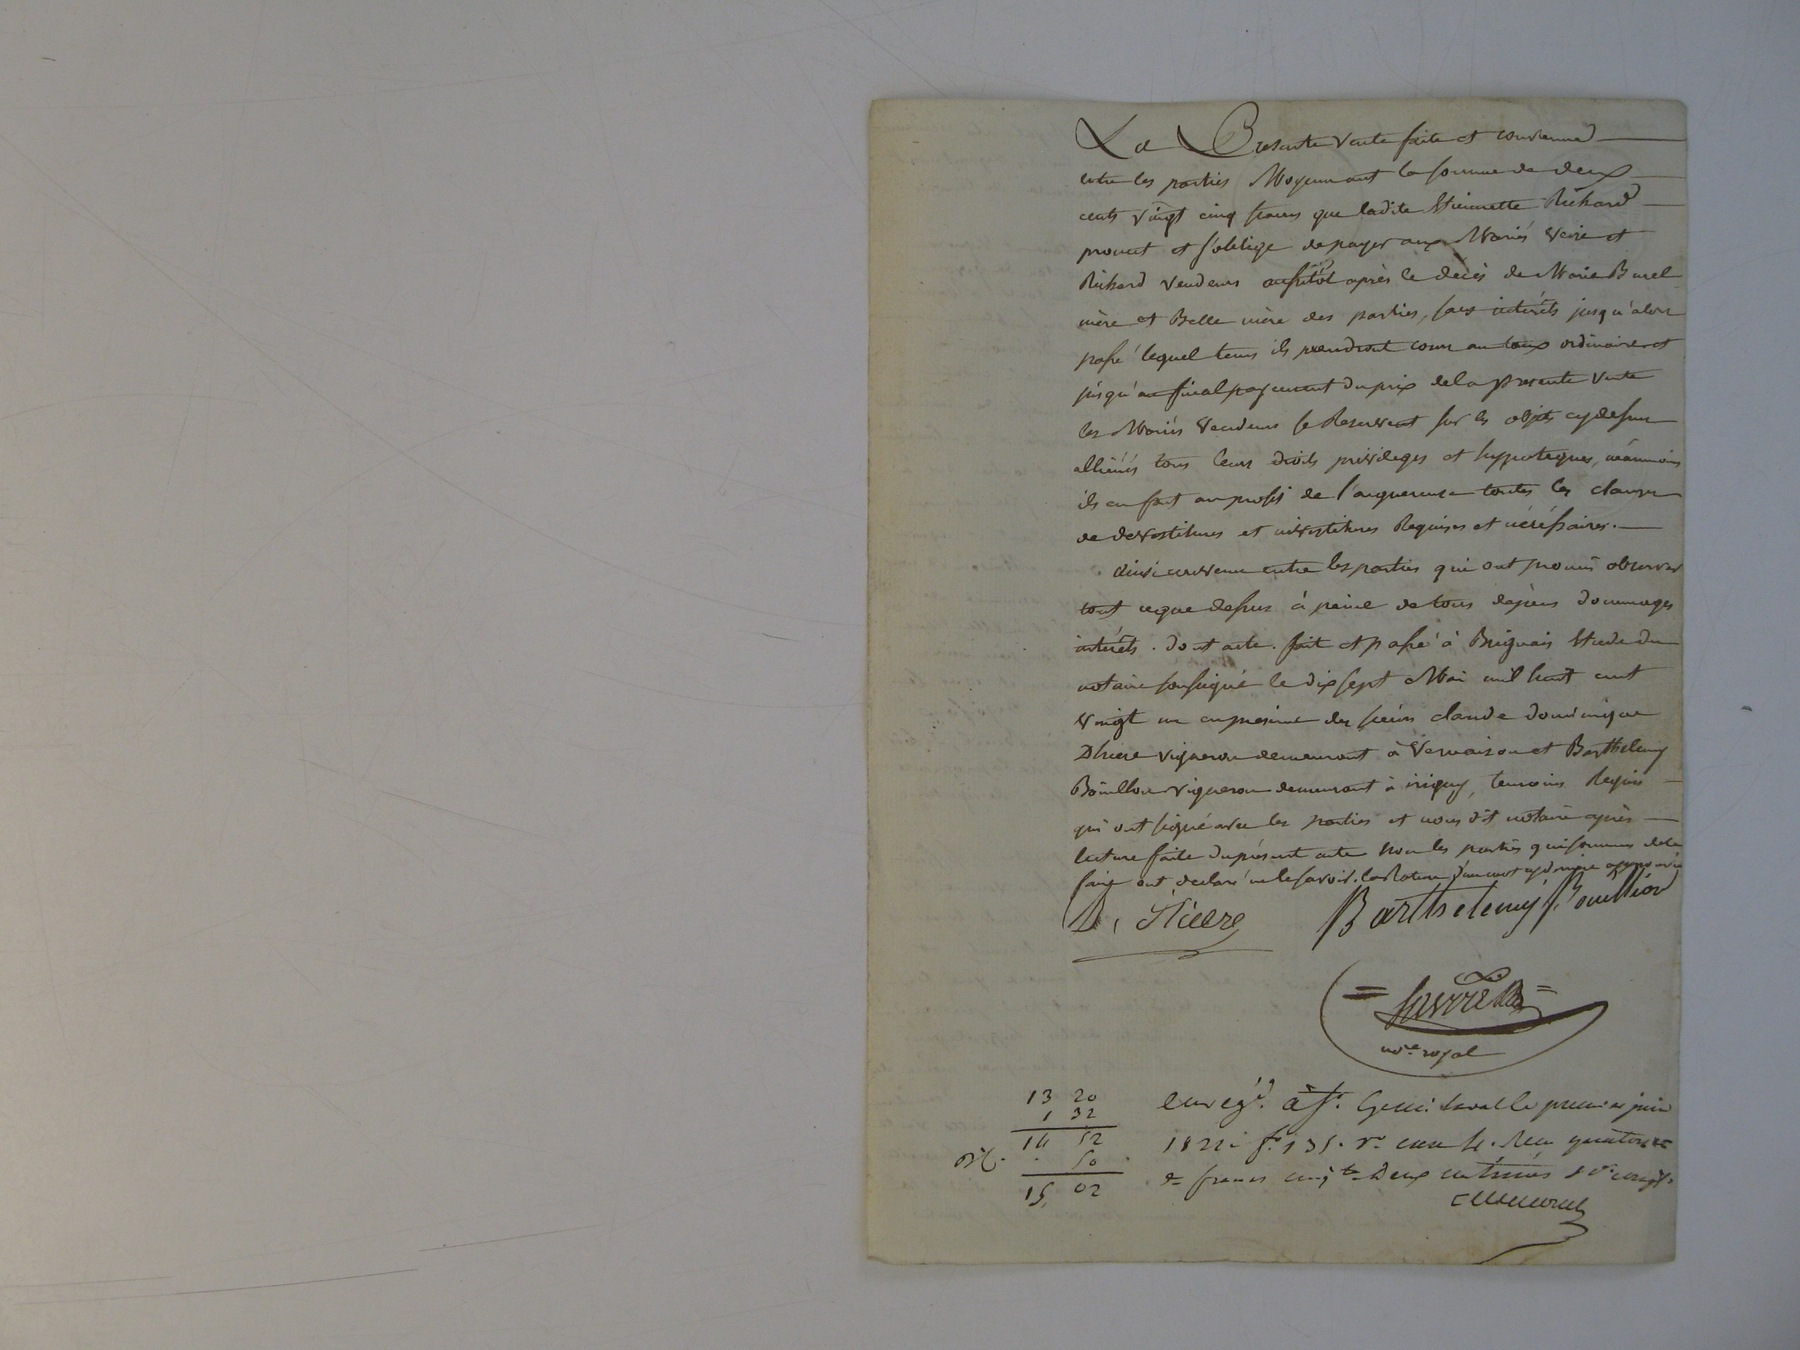 La Presente vente faite et convenue
entre les parties Moyennant la somme de deux
cents vingt cinq francs que ladite Etiennette Richard
promet et s'oblige de payer aux Mariés et
Richard vendeurs aussitôt après le decès de Marie Burel
mère et Belle mère des parties, sans intérêts jusqu'alors
passé lequel tems ils prendront cours au taux ordinaire et
jusqu'au final payement du prix de la presente vente
les Mariés vendeurs se Reservent sur les objets cy dessus
alliénés tous leurs droits privileges et hypoteques, néanmoins
ils en font au profit de l'acquereuse toutes les clauses
de devestitures et investitures Requises et nécéssaires.
ainsi convenu entre les parties qui ont promis observer
tout ceque dessus à peine de tous depens dommages
intérêts. dont acte. fait et passé à Brignais Etude du
notaire soussigné le dix sept Mai mil huit cent
vingt un en presence des sieurs claude dominique
vigneron demeurant à Vernaison et Barthelemy
Bouillon vigneron demeurant à irigny, temoins Requis
qui ont signé avec les parties et nous dit notaire après
lecture faite du présent acte non les parties qui sommées de le
faire ont déclaré ne le savoir. la Rature d'un mot approuvée
D. Barthelemy Bouillon
nore. royal
13 20
1 32
14 52
50
15, 02
enregé. à St. Genis Laval le premier juin
1821 fo. 135. ro. case 4. Reçu quatorze
francs cinqte Deux centimes